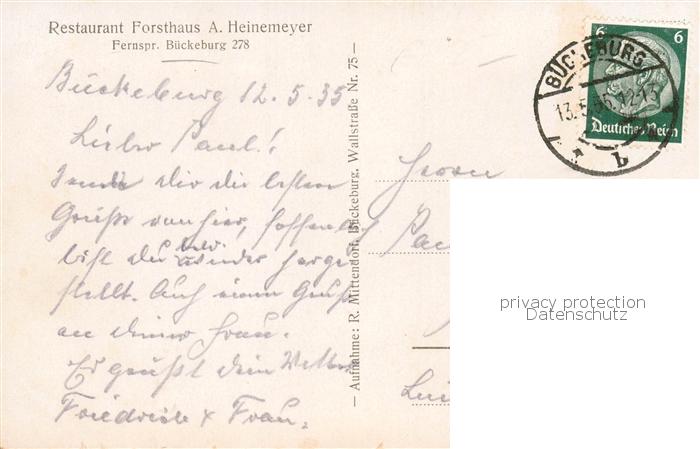 Restaurant Forsthaus A. Heinemeyer
Fernspr. Bückeburg 278
Bückeburg 12.5.35
Lieber Paul!
Sende dir die besten
Grüße von hier, hoffentlich
bist du bald wieder herge
stellt. Auch einen Gruß
an deine Frau.
Es grüßt dein Vetter
Friedrich & Frau.
— Aufnahme: R. Mittendorf, Bückeburg, Wallstraße Nr. 75 —
6 6
Deutsches Reich
BÜCKEBURG
13.5.35.12-13
b
Herrn
privacy protection
Datenschutz